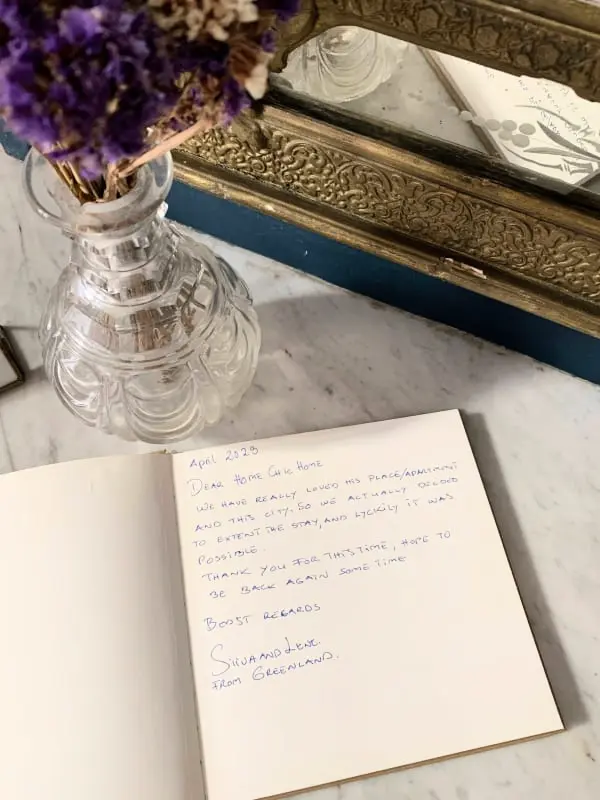 April 2023
DEAR HOME CHIC HOME
WE HAVE REALLY LOVED HIS PLACE/APARTMENT
AND THIS CITY. SO WE ACTUALLY DECIDED
TO EXTENT THE STAY, AND LYCKILY IT WAS
POSSIBLE.
THANK YOU FOR THIS TIME, HOPE TO
BE BACK AGAIN SOME TIME
BEST REGARDS
AND LENE.
FROM GREENLAND.